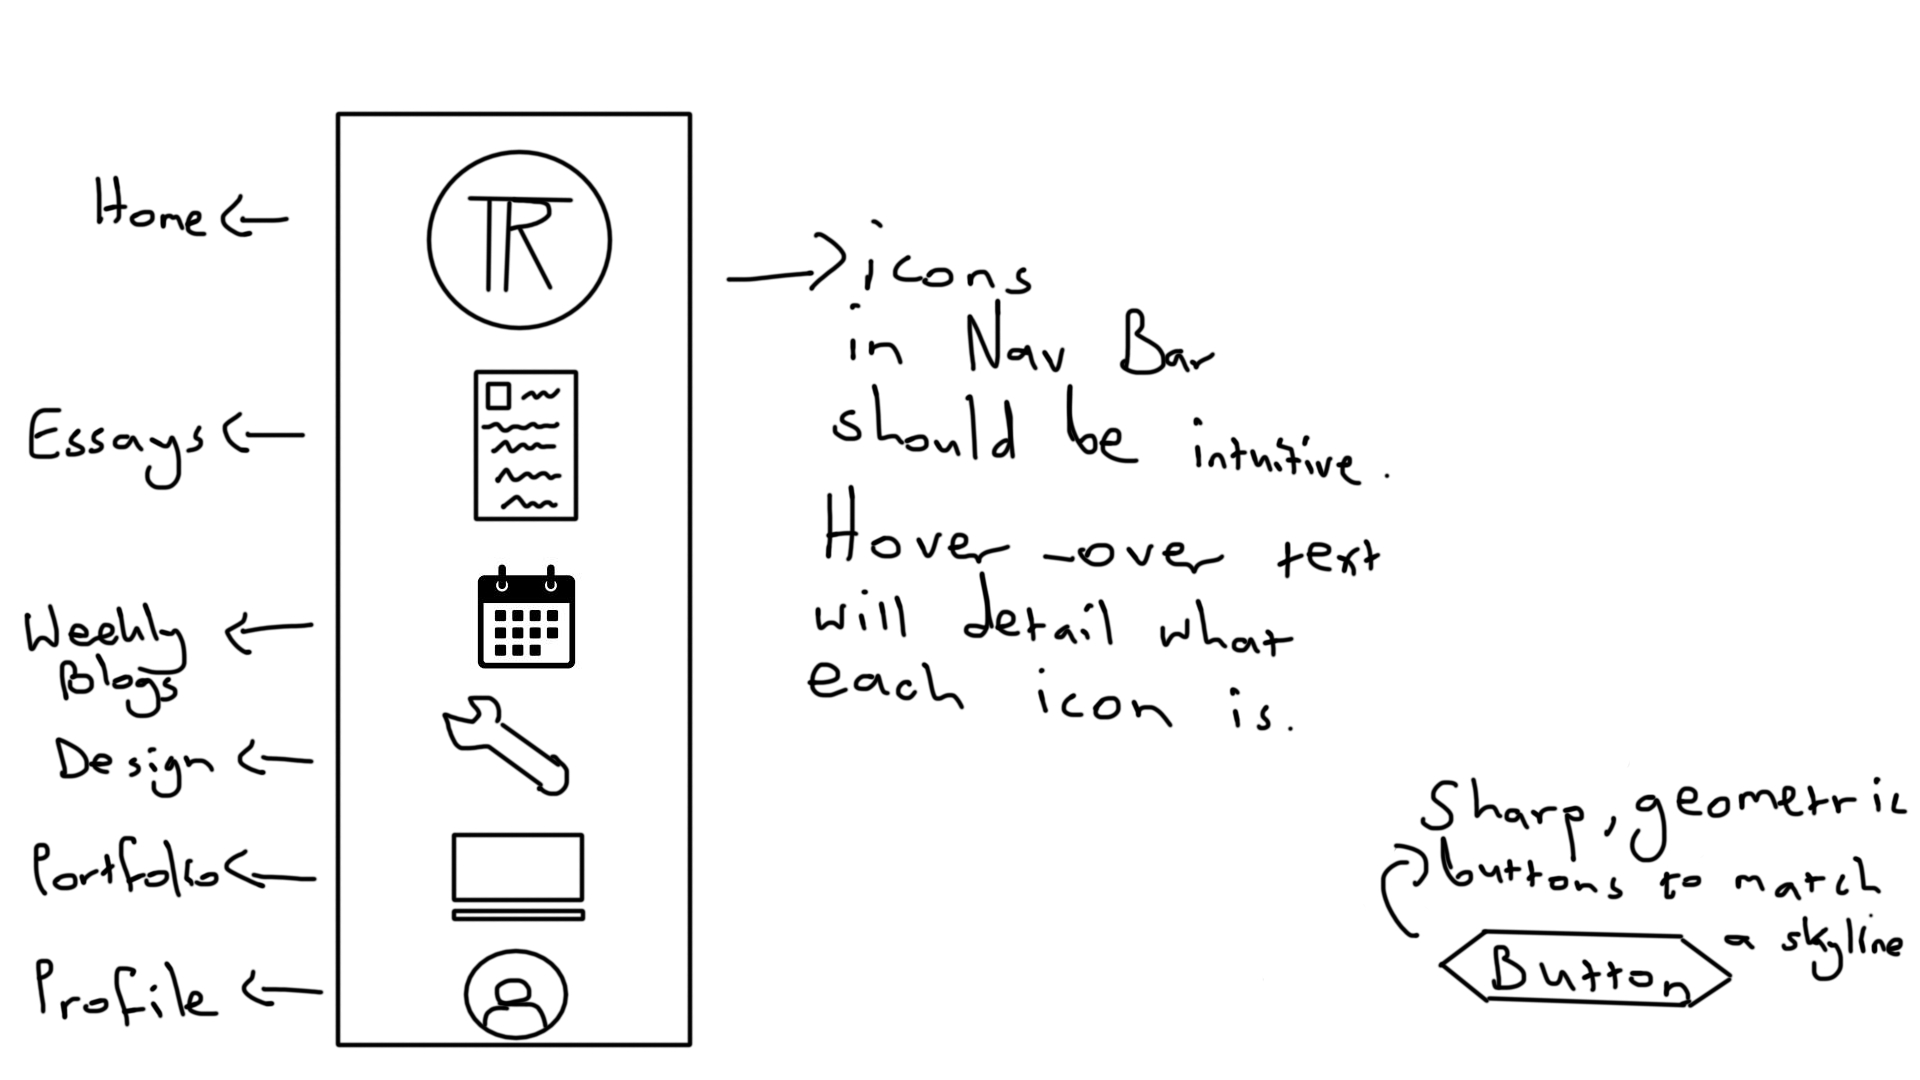 Home
TR
Essays
Weekly
Blogs
Design
Portfolio
Profile
icons
in Nav Bar
should be intuitive.
Hover-over text
will detail what
each icon is.
Sharp, geometric
buttons to match
a skyline
Button